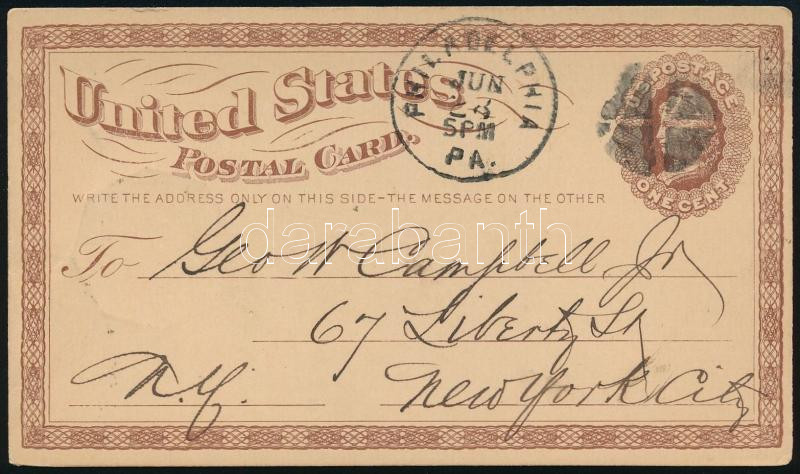 United States
POSTAL CARD.
PHILADELPHIA
JUN
5PM
PA.
U.S. POSTAGE
ONE CENT
WRITE THE ADDRESS ONLY ON THIS SIDE—THE MESSAGE ON THE OTHER
darabanth
To Geo W Campbell Jr
67 Liberty St
N.Y. New York City